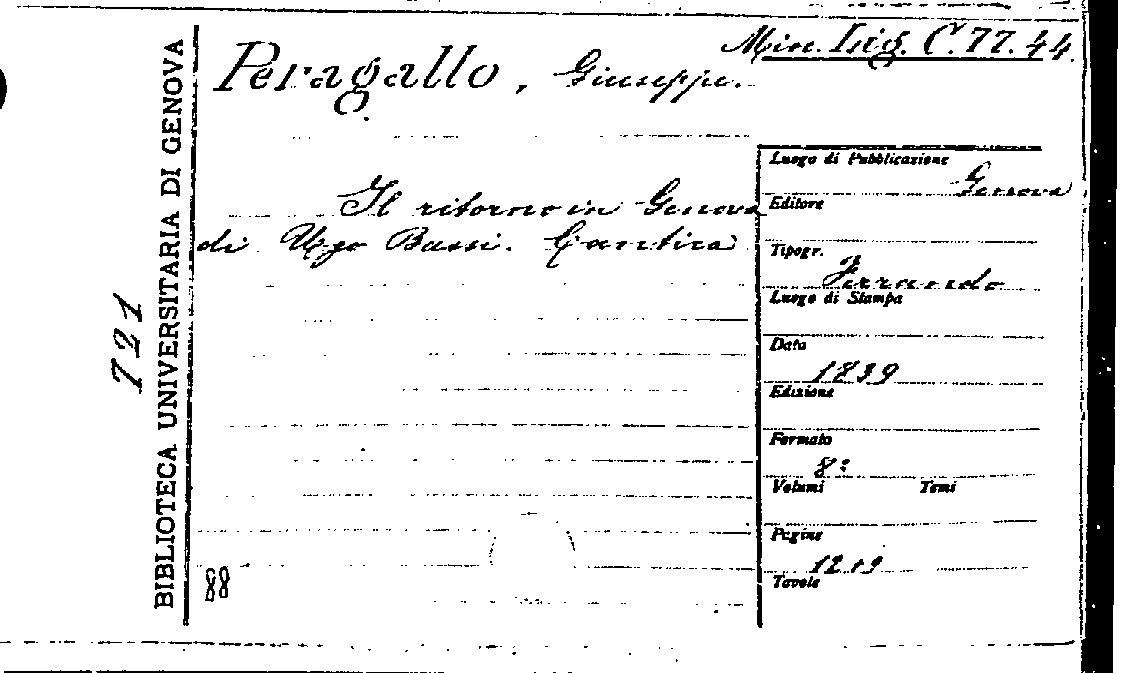 Min. Lig. C. 77. 44.
Peragallo, Giuseppe.
Il ritorno in Genova
di Ugo Bassi. Cantica
Luogo di Pubblicazione
Genova
Editore
Tipogr.
Ferrando
Luogo di Stampa
Data
1839
Edizione
Formato
8°
Volumi Tomi
Pagine
Tavole
BIBLIOTECA UNIVERSITARIA DI GENOVA
721
88